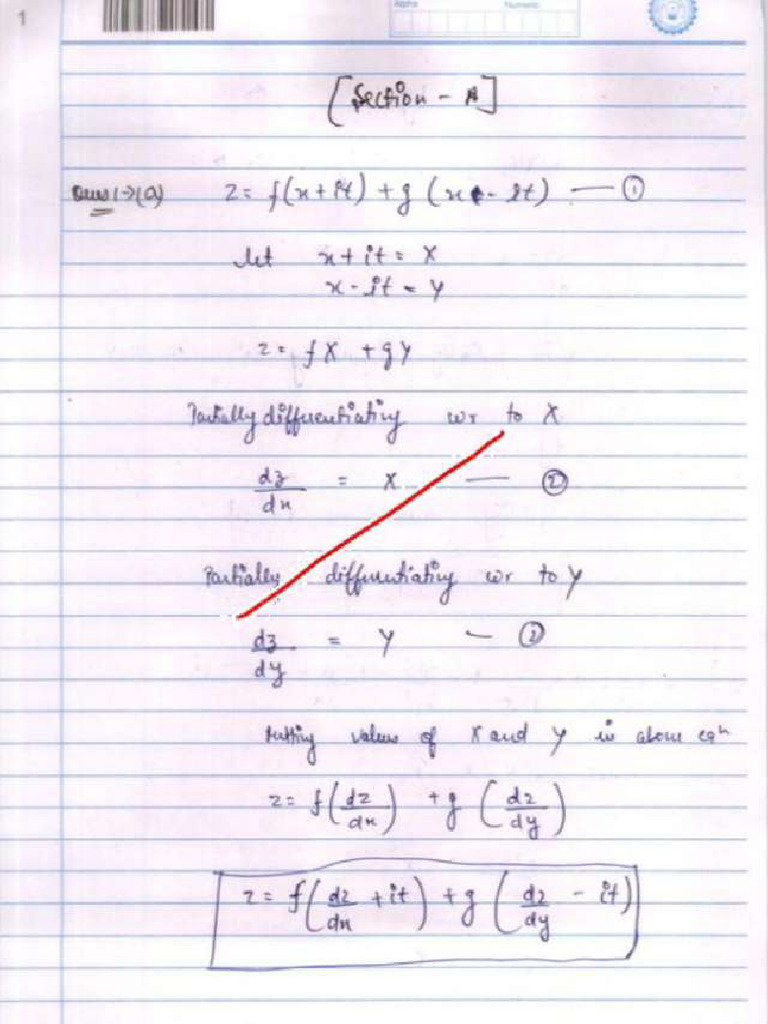 1
Alpha Numeric
[Section - A]
Ques1→(a) z = f(x+it) + g(x - it) — ①
let x + it = X
x - it = Y
z = fX + gY
Partially differentiating wr to X
dz/dx = X — ②
Partially differentiating wr to Y
dz/dy = Y — ②
Putting values of X and Y in above eqn
z = f(dz/dx) + g(dz/dy)
z = f(dz/dx + it) + g(dz/dy - it)